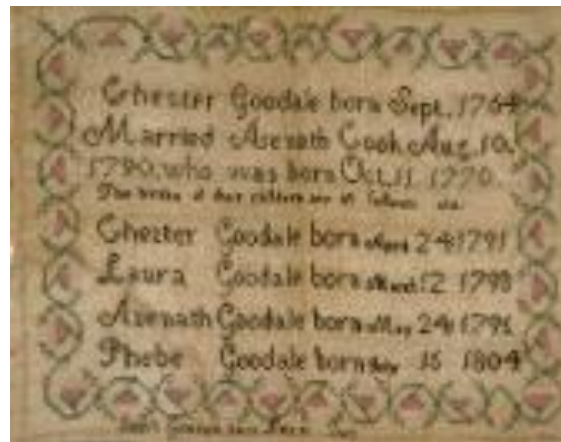 Chester Goodale born Sept. 1764
Married Asenath Cook Aug. 10.
1790. who was born Oct. 11. 1770.
The births of their children are as follows
Chester Goodale born April 24 1791
Laura Goodale born March 12 1793
Asenath Goodale born May 24 1795
Phebe Goodale born 16 1804